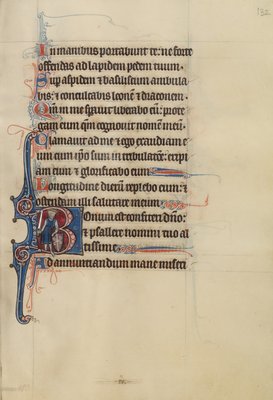 In manibus portabunt te: ne forte
offendas ad lapidem pedem tuum.
Sup aspidem & basiliscum ambula
bis: & conculcabis leonē & draconem.
Qm̄ in me sperauit liberabo eū: prote
gam eum qm̄ cognouit nomen meū.
Clamauit ad me & ego exaudiam e
um cum ip̄o sum in tribulatōe: eripi
am eum & glorificabo eum
Longitudine dierū replebo eum: &
ostendam illi salutare meum.
Bonum est confiteri dn̄o:
& psallere nomini tuo al
tissime
Ad annuntiandum mane miseri